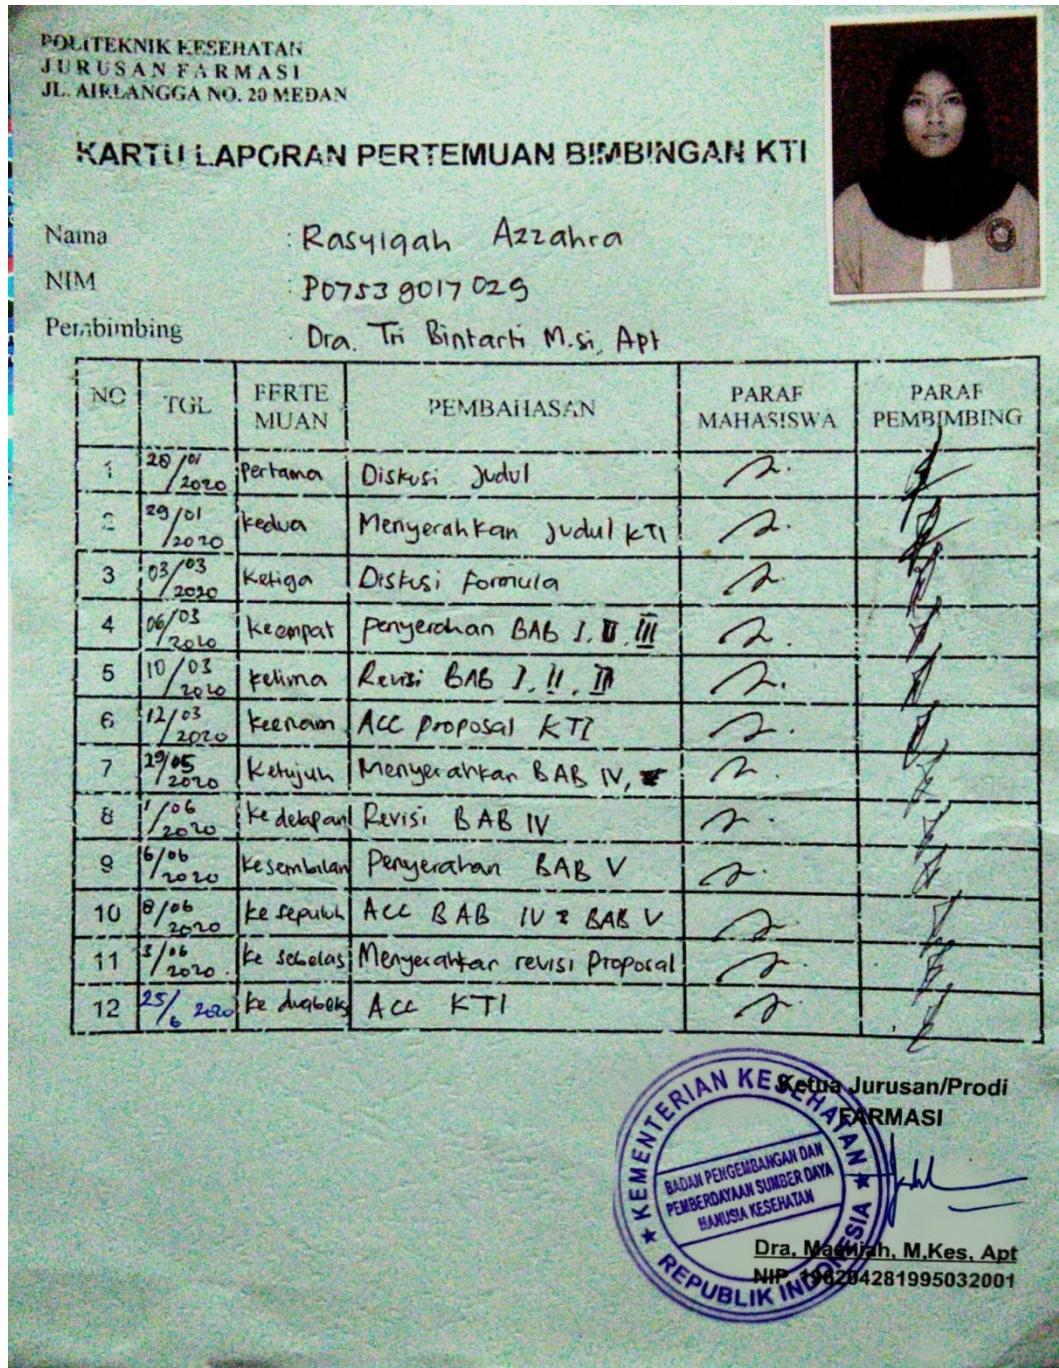 POLITEKNIK KESEHATAN
JURUSAN FARMASI
JL. AIRLANGGA NO. 20 MEDAN
KARTU LAPORAN PERTEMUAN BIMBINGAN KTI
Nama : Rasyiqah Azzahra
NIM : P07539017029
Pembimbing : Dra. Tri Bintarti M.si, Apt
NO TGL PERTEMUAN PEMBAHASAN PARAF MAHASISWA PARAF PEMBIMBING
1 28/01 2020 pertama Diskusi Judul
2 29/01 2020 kedua Menyerahkan Judul KTI
3 03/03 2020 Ketiga Diskusi formula
4 06/03 2020 keempat penyerahan BAB I, II, III
5 10/03 2020 kelima Revisi BAB I, II, III
6 12/03 2020 keenam ACC proposal KTI
7 29/05 2020 Ketujuh Menyerahkan BAB IV,
8 1/06 2020 kedelapan Revisi BAB IV
9 6/06 2020 kesembilan Penyerahan BAB V
10 8/06 2020 ke sepuluh ACC BAB IV & BAB V
11 /06 2020 ke sebelas Menyerahkan revisi proposal
12 25/6 2020 ke duabelas ACC KTI
Ketua Jurusan/Prodi
FARMASI
KEMENTERIAN KESEHATAN
BADAN PENGEMBANGAN DAN
PEMBERDAYAAN SUMBER DAYA
MANUSIA KESEHATAN
REPUBLIK INDONESIA
Dra, Masniah, M,Kes, Apt
NIP. 196204281995032001